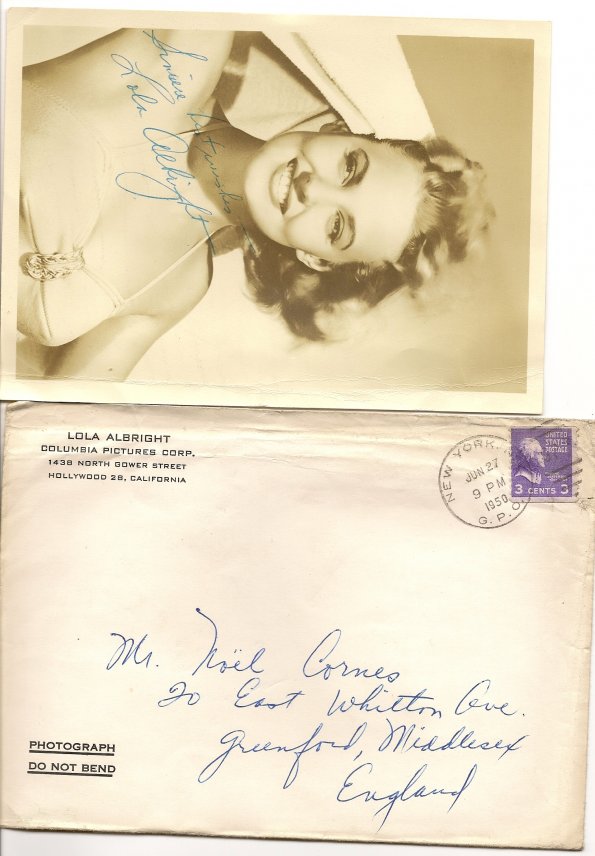 Sincere best wishes
Lola Albright
LOLA ALBRIGHT
COLUMBIA PICTURES CORP.
1438 NORTH GOWER STREET
HOLLYWOOD 28, CALIFORNIA
NEW YORK,
JUN 27
9 PM
1950
G. P. O.
UNITED
STATES
POSTAGE
3 CENTS 3
Mr. Noël Cornes
20 East Whitton Ave.
Greenford, Middlesex
England
PHOTOGRAPH
DO NOT BEND